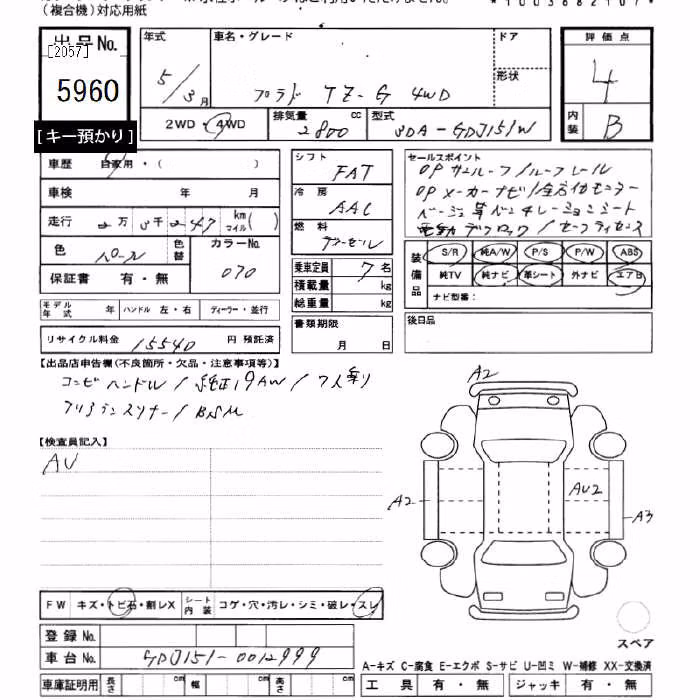 （複合機）対応用紙
*1003682107*
出品No.
[2057]
5960
[キー預かり]
年式
5/3月
車名・グレード
プラド TZ-G 4WD
ドア
形状
評価点
4
内装
B
2WD・4WD
排気量
2800 cc
型式
3DA-GDJ151W
車歴 自家用・( )
車検 年 月
走行 2万5千247 km マイル( )
色 パール
色替
カラーNo.
070
保証書 有・無
モデル年式 年 ハンドル 左・右 ディーラー・並行
リサイクル料金 15540 円 預託済
シフト
FAT
冷房
AAC
燃料
乗車定員 7 名
積載量 kg
総重量 kg
書類期限
月 日
セールスポイント
OPサンルーフ/ルーフレール
OPメーカーナビ/全方位モニター
ベージュ革ベンチレーションシート
電動デフロック/セーフティセンス
装備品
S/R 純A/W P/S P/W ABS
純TV 純ナビ 革シート 外ナビ エアB
ナビ型番:
後日品
【出品店申告欄(不良箇所・欠品・注意事項等)】
コンビハンドル/純正19AW/7人乗り
クリアランスソナー/BSM
【検査員記入】
AU
A2
A2
AU2
A3
スペア
FW キズ・トビ石・割レX シート内装 コゲ・穴・汚レ・シミ・破レ・スレ
登録No.
車台No. GDJ151-0012999
車庫証明用 長さ cm 幅 cm 高さ cm
A-キズ C-腐食 E-エクボ S-サビ U-凹ミ W-補修 XX-交換済
工具 有・無 ジャッキ 有・無